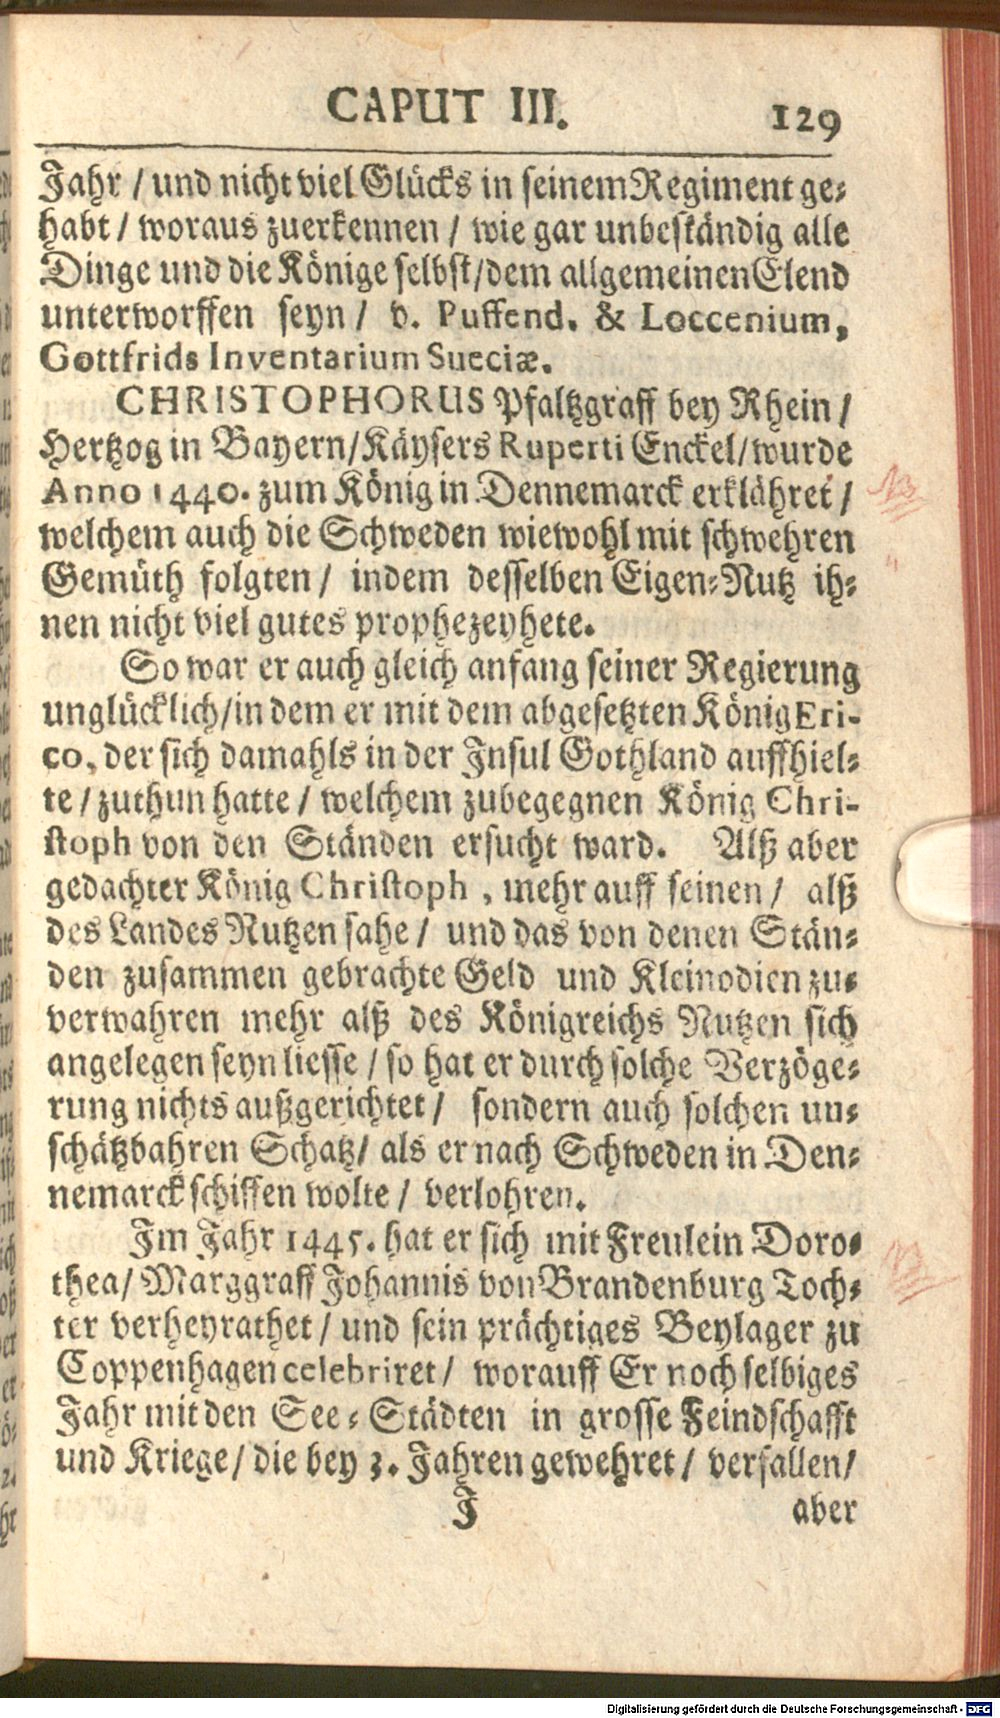 CAPUT III. 129
Jahr / und nicht viel Glücks in seinem Regiment ge-
habt / woraus zuerkennen / wie gar unbeständig alle
Dinge und die Könige selbst / dem allgemeinen Elend
unterworffen seyn / v. Puffend. & Loccenium,
Gottfrids Inventarium Sueciæ.
CHRISTOPHORUS Pfaltzgraff bey Rhein /
Hertzog in Bayern / Käysers Ruperti Enckel / wurde
Anno 1440. zum König in Dennemarck erklähret /
welchem auch die Schweden wiewohl mit schwehren
Gemüth folgten / indem desselben Eigen-Nutz ih-
nen nicht viel gutes prophezeyhete.
So war er auch gleich anfang seiner Regierung
unglücklich / in dem er mit dem abgesetzten König Eri-
co, der sich damahls in der Insul Gothland auffhiel-
te / zuthun hatte / welchem zubegegnen König Chri-
stoph von den Ständen ersucht ward. Alß aber
gedachter König Christoph, mehr auff seinen / alß
des Landes Nutzen sahe / und das von denen Stän-
den zusammen gebrachte Geld und Kleinodien zu-
verwahren mehr alß des Königreichs Nutzen sich
angelegen seyn liesse / so hat er durch solche Verzöge-
rung nichts außgerichtet / sondern auch solchen un-
schätzbahren Schatz / als er nach Schweden in Den-
nemarck schiffen wolte / verlohren.
Im Jahr 1445. hat er sich mit Freulein Doro-
thea / Marggraff Johannis von Brandenburg Toch-
ter verheyrathet / und sein prächtiges Beylager zu
Coppenhagen celebriret / worauff Er noch selbiges
Jahr mit den See-Städten in grosse Feindschafft
und Kriege / die bey 3. Jahren gewehret / verfallen /
J aber
Digitalisierung gefördert durch die Deutsche Forschungsgemeinschaft - DFG